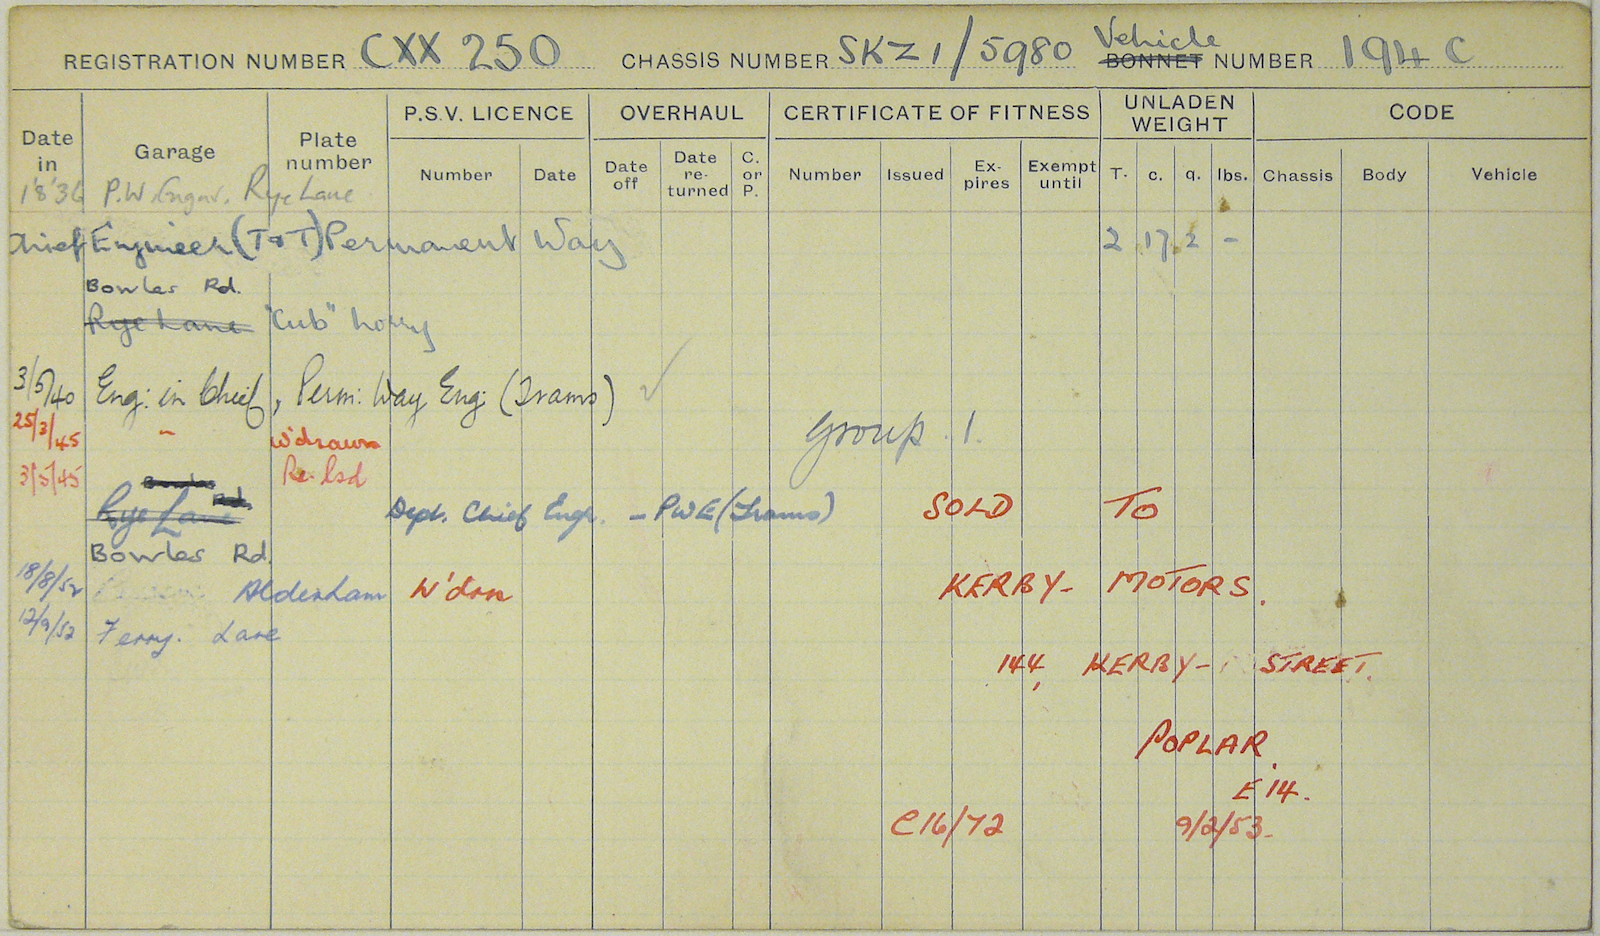 REGISTRATION NUMBER CXX 250 CHASSIS NUMBER SKZ1/5980 Vehicle BONNET NUMBER 194 C
Date in Garage Plate number P.S.V. LICENCE OVERHAUL CERTIFICATE OF FITNESS UNLADEN WEIGHT CODE
Number Date Date off Date re-turned C. or P. Number Issued Ex-pires Exempt until T. c. q. lbs. Chassis Body Vehicle
1'8'36 P.W. Engnr. Rye Lane
Chief Engineer (T&T) Permanent Way 2 17 2 -
Bowles Rd.
Rye Lane "Cub" Lorry
3/5/40 Eng: in Chief, Perm: Way Eng: (Trams) ✓
25/3/45 " W'drawn Group 1.
3/5/45 Re-lsd
Bowles Rd.
Rye Lane Dept. Chief Engr. - PWE (Trams) SOLD TO
Bowles Rd.
18/8/52 Aldenham W'drn KERBY- MOTORS.
12/9/52 Ferry. Lane
144, KERBY- STREET.
POPLAR.
E 14.
C16/72 9/2/53.